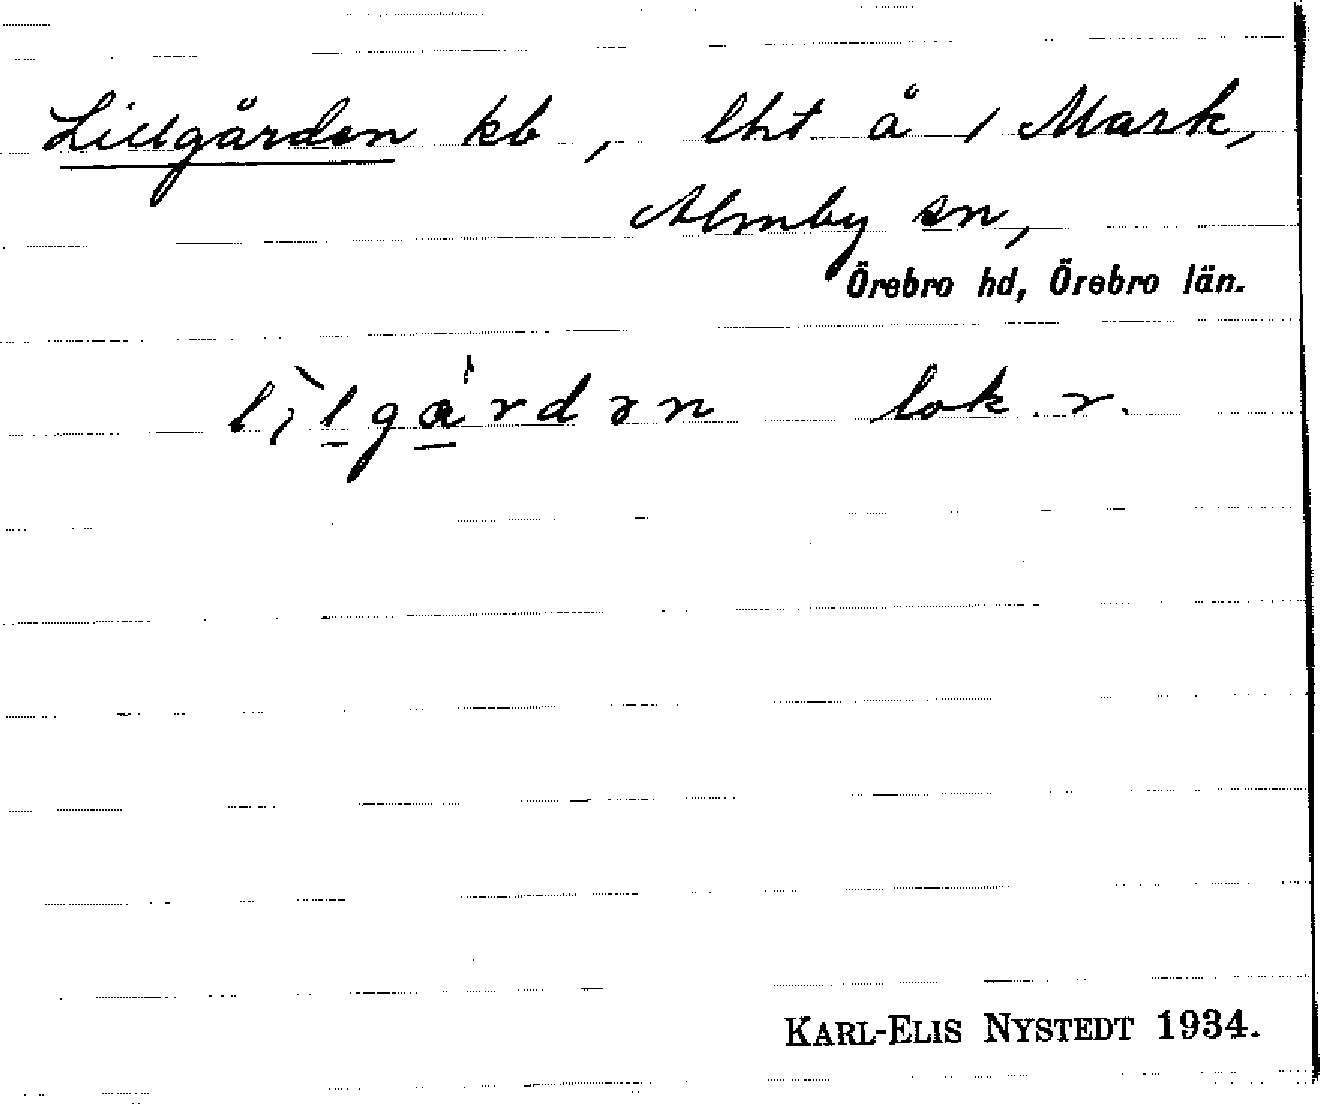 Lillgården kb, lht å 1 Mark,
Almby sn,
Örebro hd, Örebro län.
lìlgárdən lok. r.
KARL-ELIS NYSTEDT 1934.